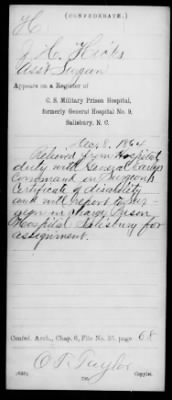 (CONFEDERATE.)
H
J. H. Hicks
Asst Surgeon
Appears on a Register of
C. S. Military Prison Hospital,
formerly General Hospital No. 9,
Salisbury, N. C.
Dec 8. 1864
Relieved from Hospital
duty with General Early's
Command on Surgeon's
Certificate of disability
and will report to Sur-
geon in charge Prison
Hospital Salisbury for
assignment.
Confed. Arch., Chap. 6, File No. 25, page 68
O. T. Taylor
Copyist.